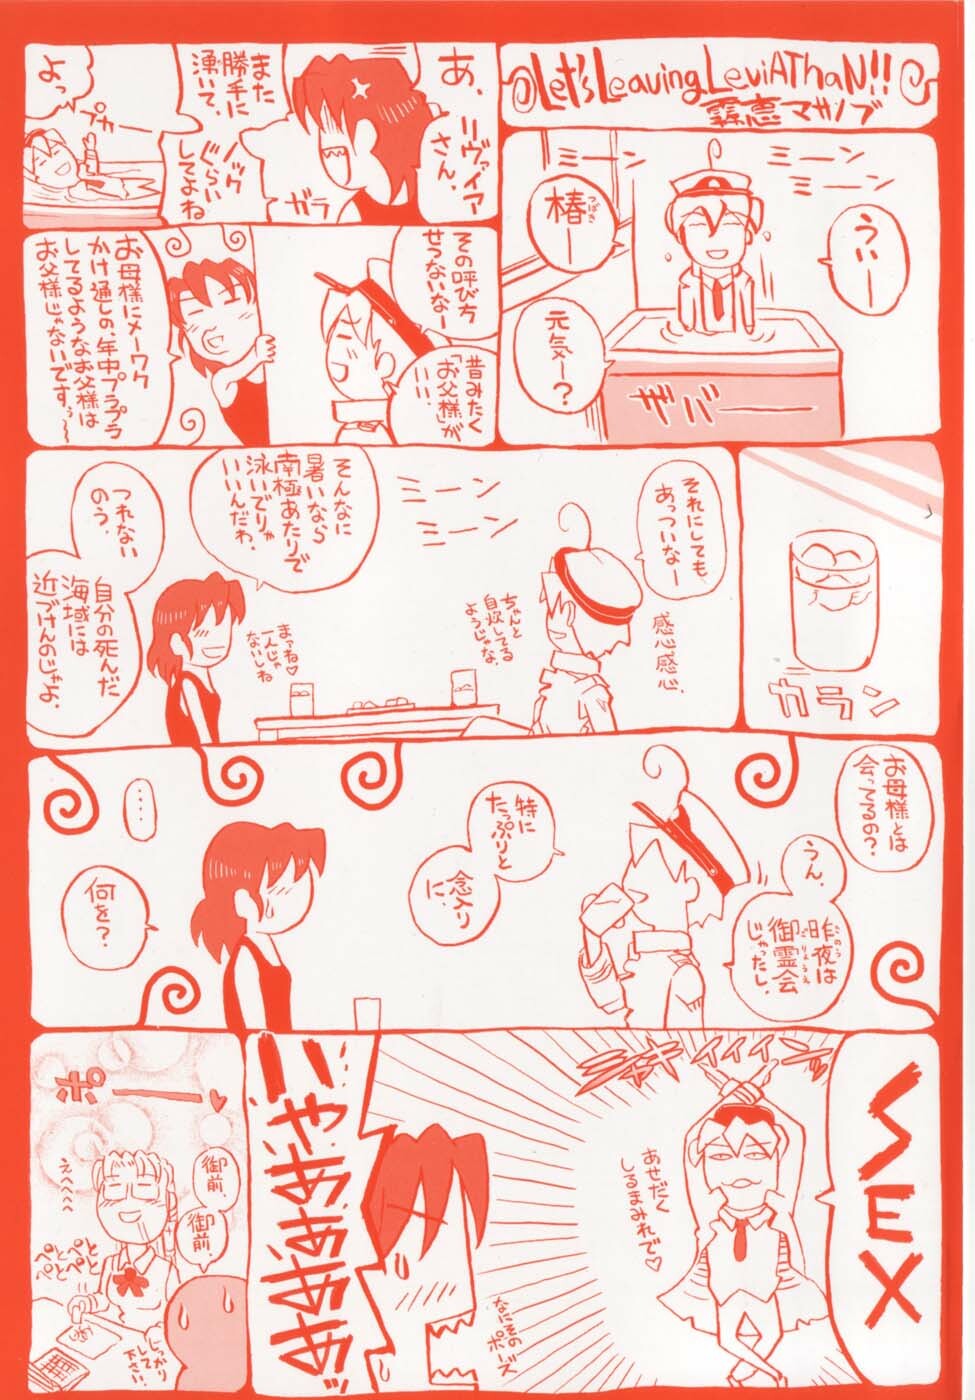 Let's Leaving LeviAThaN!!
霧恵マサノブ
ミーン
ミーン
ミーン
うぃー
椿ー
つばき
元気ー?
ザバーー
あ、
リヴァイア
さん、
また
勝手に
湧いて、
ノック
ぐらい
してよね
ガラ
よっ
プカー
その呼び方
せつないなー
昔みたく
「お父様」が
いい、
お母様にメーワク
かけ通しの、年中プラプラ
してるようなお父様は
お父様じゃないですぅ〜〜
カラン
それにしても
あっついなー
感心感心、
ちゃんと
自炊してる
ようじゃな、
ミーン
ミーン
そんなに
暑いなら
南極あたりで
泳いでりゃ
いいんだわ、
まァね♡
一人じゃ
ないしね
つれない
のう、
自分の死んだ
海域には
近づけんのじゃよ、
お母様とは
会ってるの?
うん、
昨夜は
御霊会
じゃったし、
ごりょうえ
特に
たっぷりと
念入り
に、
・・・・
何を?
SEX
ジャキィィィンッ
あせだく
しるまみれで♡
なにその
ポーズ
いやああああああぁっ
ポーー♥
御前、
御前、
えへへへへ
ペとペと
ペとペと
しっかり
して
下さい、